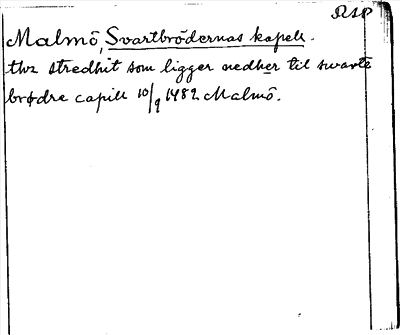 RAP
Malmö, Svartbrödernas kapell.
thz stredhit som ligger nedher til swarte
brødre capill 10/9 1482 Malmö.